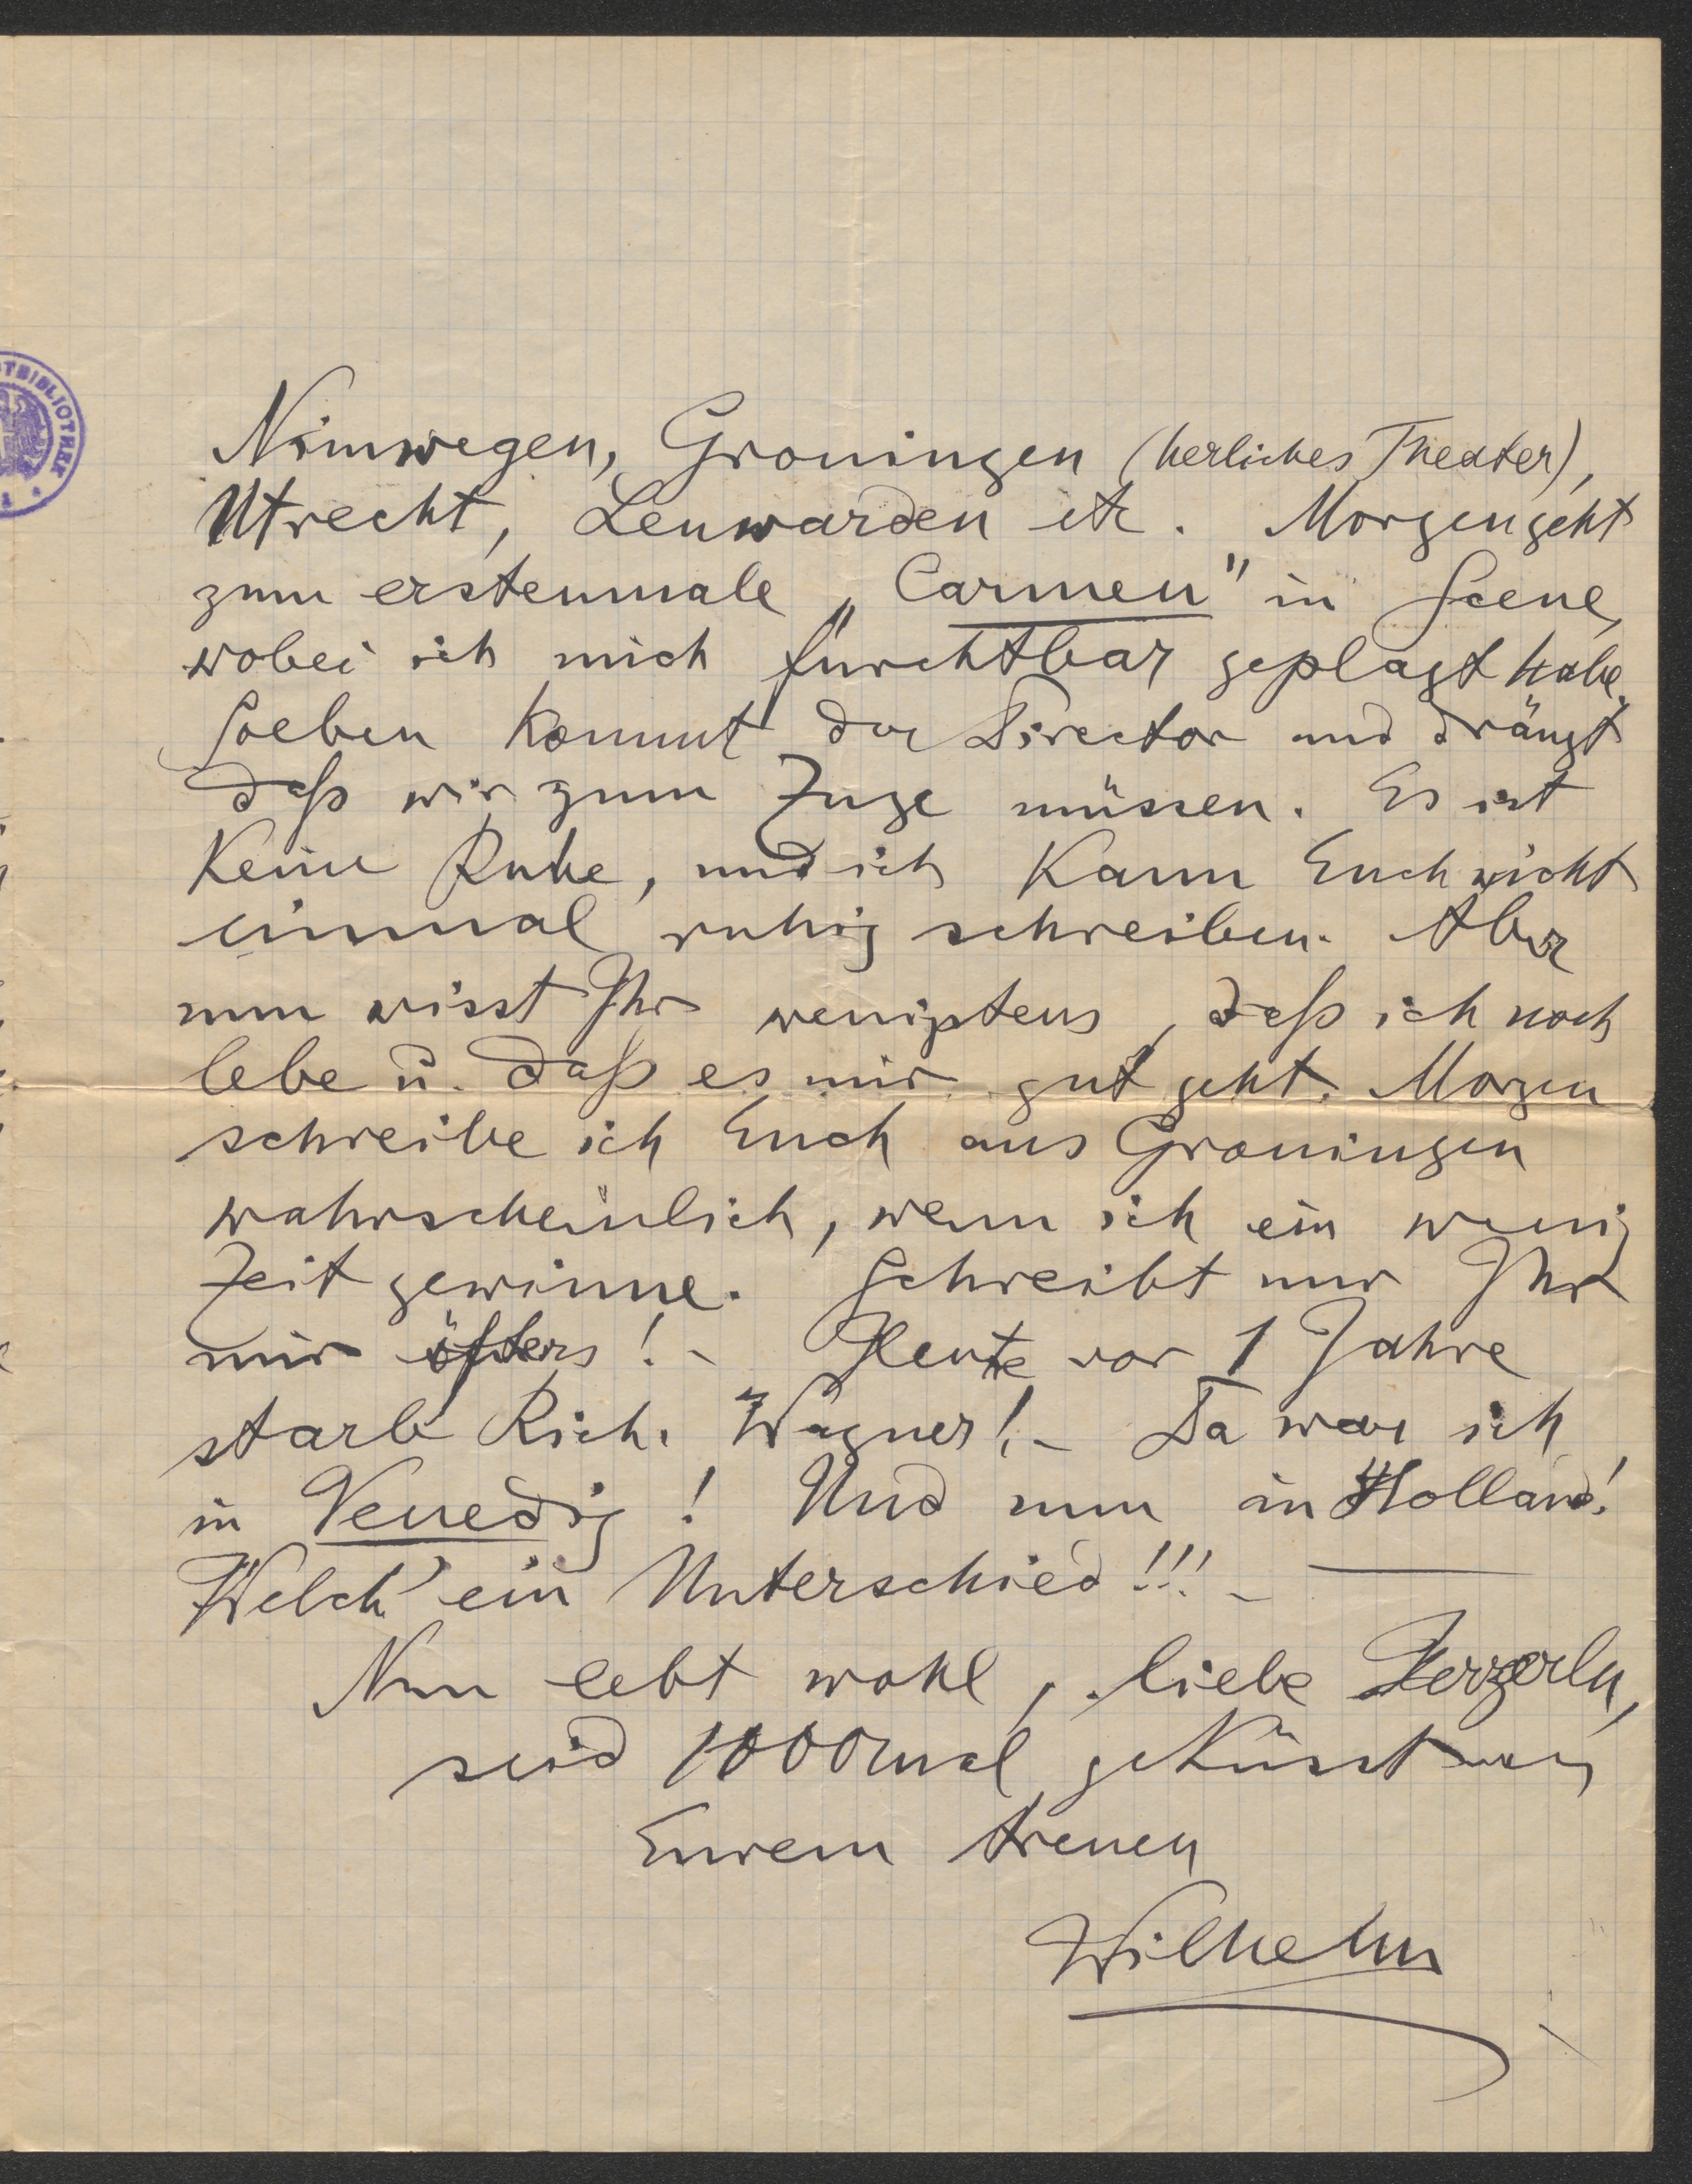 Nimwegen, Groningen (herliches Theater),
Utrecht, Leuwarden etc. Morgen geht
zum erstenmale „Carmen" in Scene,
wobei ich mich furchtbar geplagt habe.
Soeben kommt der Director und drängt
daß wir zum Zuge müssen. Es ist
keine Ruhe, und ich kann Euch nicht
einmal ruhig schreiben. Aber
nun wisst Ihr wenigstens, daß ich noch
lebe u. daß es mir gut geht. Morgen
schreibe ich Euch aus Groningen
wahrscheinlich, wenn ich ein wenig
Zeit gewinne. Schreibt nur Ihr
mir öfters! - Heute vor 1 Jahre
starb Rich. Wagner! - Da war ich
in Venedig! Und nun in Holland!
Welch' ein Unterschied!!! -
Nun lebt wohl, liebe Herzerln,
seid 1000mal geküsst von
Eurem treuen
Wilhelm